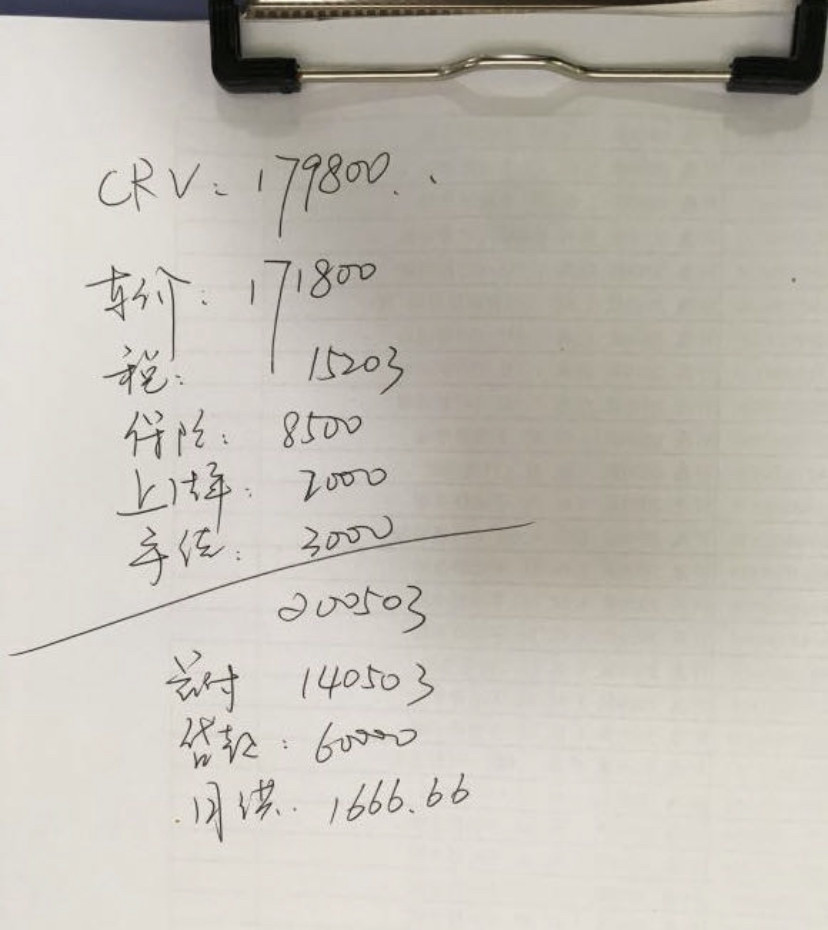 CRV: 179800..
车价: 171800
税: 15203
保险: 8500
上牌: 2000
手续: 3000
200503
首付 140503
贷款: 60000
月供. 1666.66